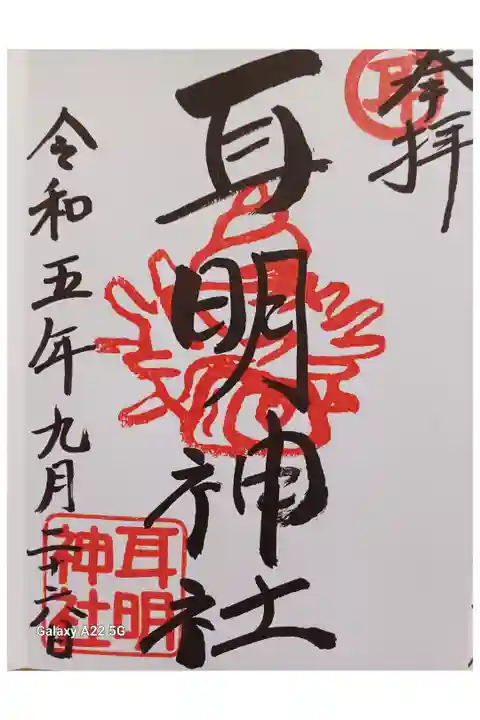 奉拝
耳明神社
令和五年九月二十六日
耳明
神社
Galaxy A22 5G